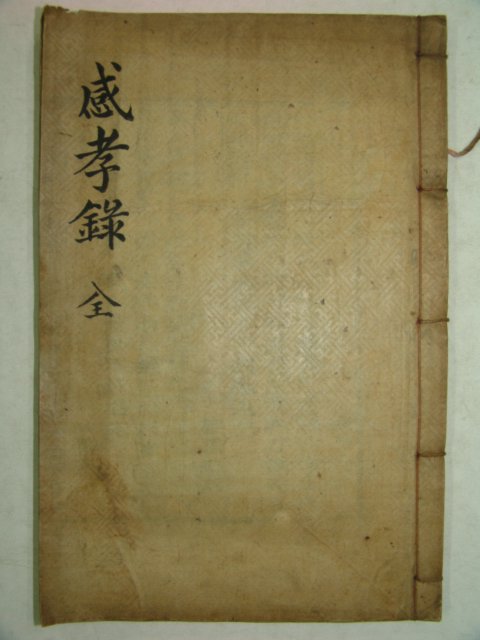 感孝錄 全